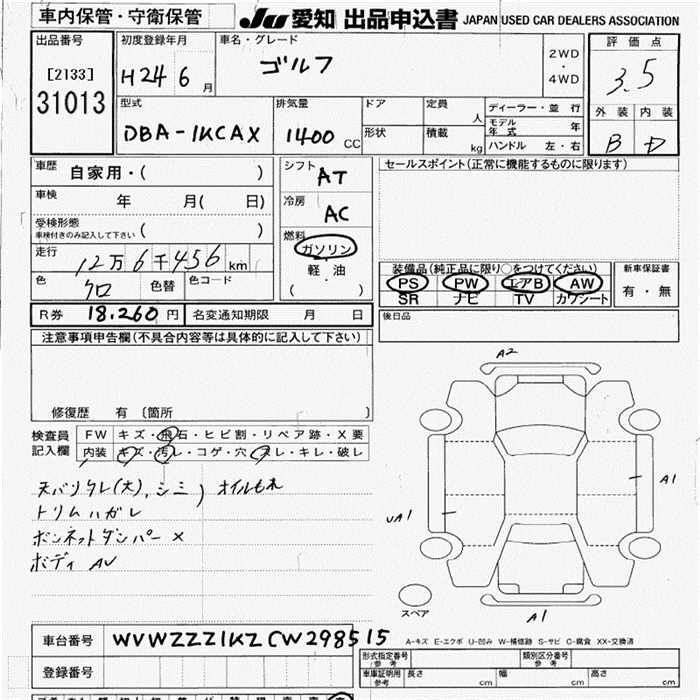 車内保管・守衛保管 JU 愛知 出品申込書 JAPAN USED CAR DEALERS ASSOCIATION
出品番号 初度登録年月 車名・グレード 評価点
[2133] H24 6 月 ゴルフ 2WD・4WD 3.5
31013
外装 内装
型式 排気量 ドア 定員 人 ディーラー・並行
DBA-1KCAX 1400 CC 形状 積載 kg モデル年式 年
ハンドル 左・右 B D
車歴 自家用・( ) シフト AT セールスポイント(正常に機能するものに限ります)
車検 年 月( 日) 冷房 AC
受検形態 ( )
車検付きのみ記入して下さい
燃料 ガソリン
軽油
( )
走行 12万6千456 km
色 クロ 色替 色コード
装備品(純正品に限り○をつけてください) 新車保証書
PS PW エアB AW 有・無
SR ナビ TV カワシート
R券 18.260 円 名変通知期限 月 日 後日品
注意事項申告欄(不具合内容等は具体的に記入して下さい)
修復歴 有 〔箇所 〕
検査員 FW キズ・飛石・ヒビ割・リペア跡・X要
記入欄 内装 キズ・汚レ・コゲ・穴・スレ・キレ・破レ
天バリタレ(大)、シミ) オイルもれ
トリムハガレ
ボンネットダンパー ×
ボディ AU
A2
A1
UA1
スペア A1
車台番号 WVWZZZ1KZCW298515
A-キズ E-エクボ U-凹み W-補修跡 S-サビ C-腐食 XX-交換済
登録番号
形式指定番号 参考 類別区分番号 参考
車庫証明用 参考 長さ cm 幅 cm 高さ cm